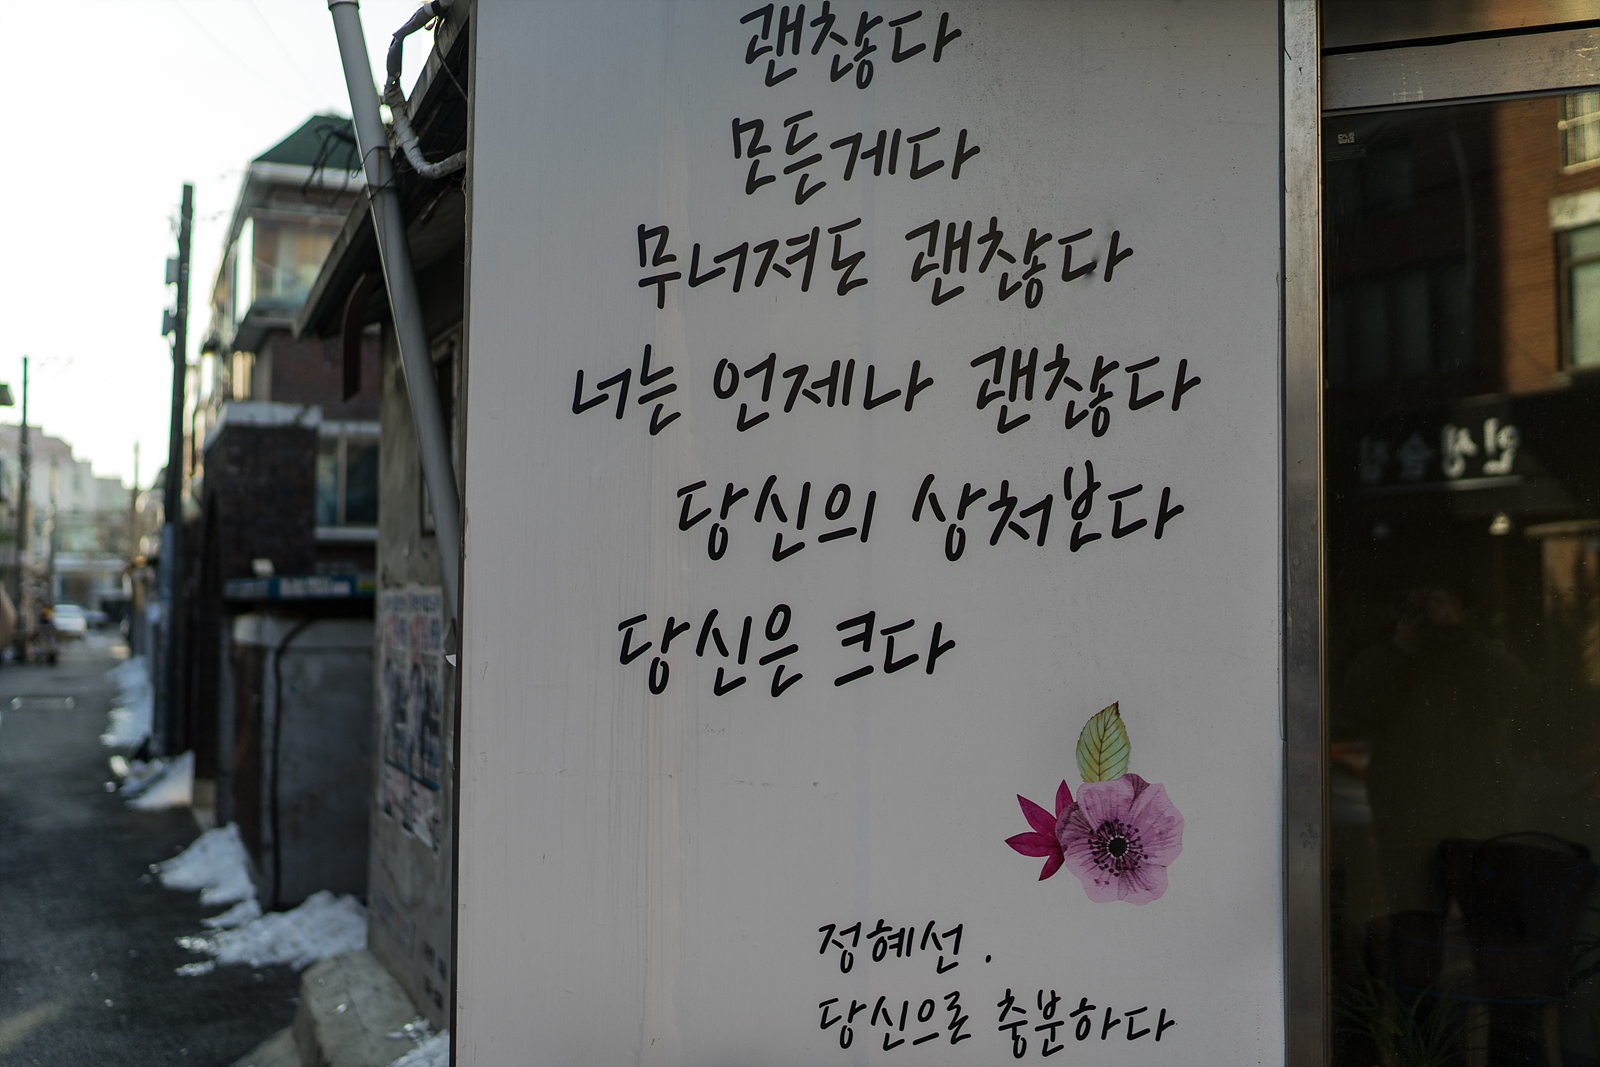 괜찮다
모든게다
무너져도 괜찮다
너는 언제나 괜찮다
당신의 상처보다
당신은 크다
정혜선.
당신으로 충분하다